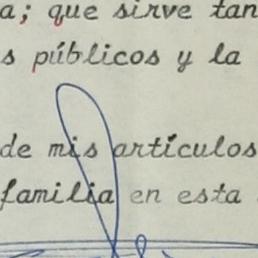 a; que sirve tan
s públicos y la
de mis artículos
familia en esta